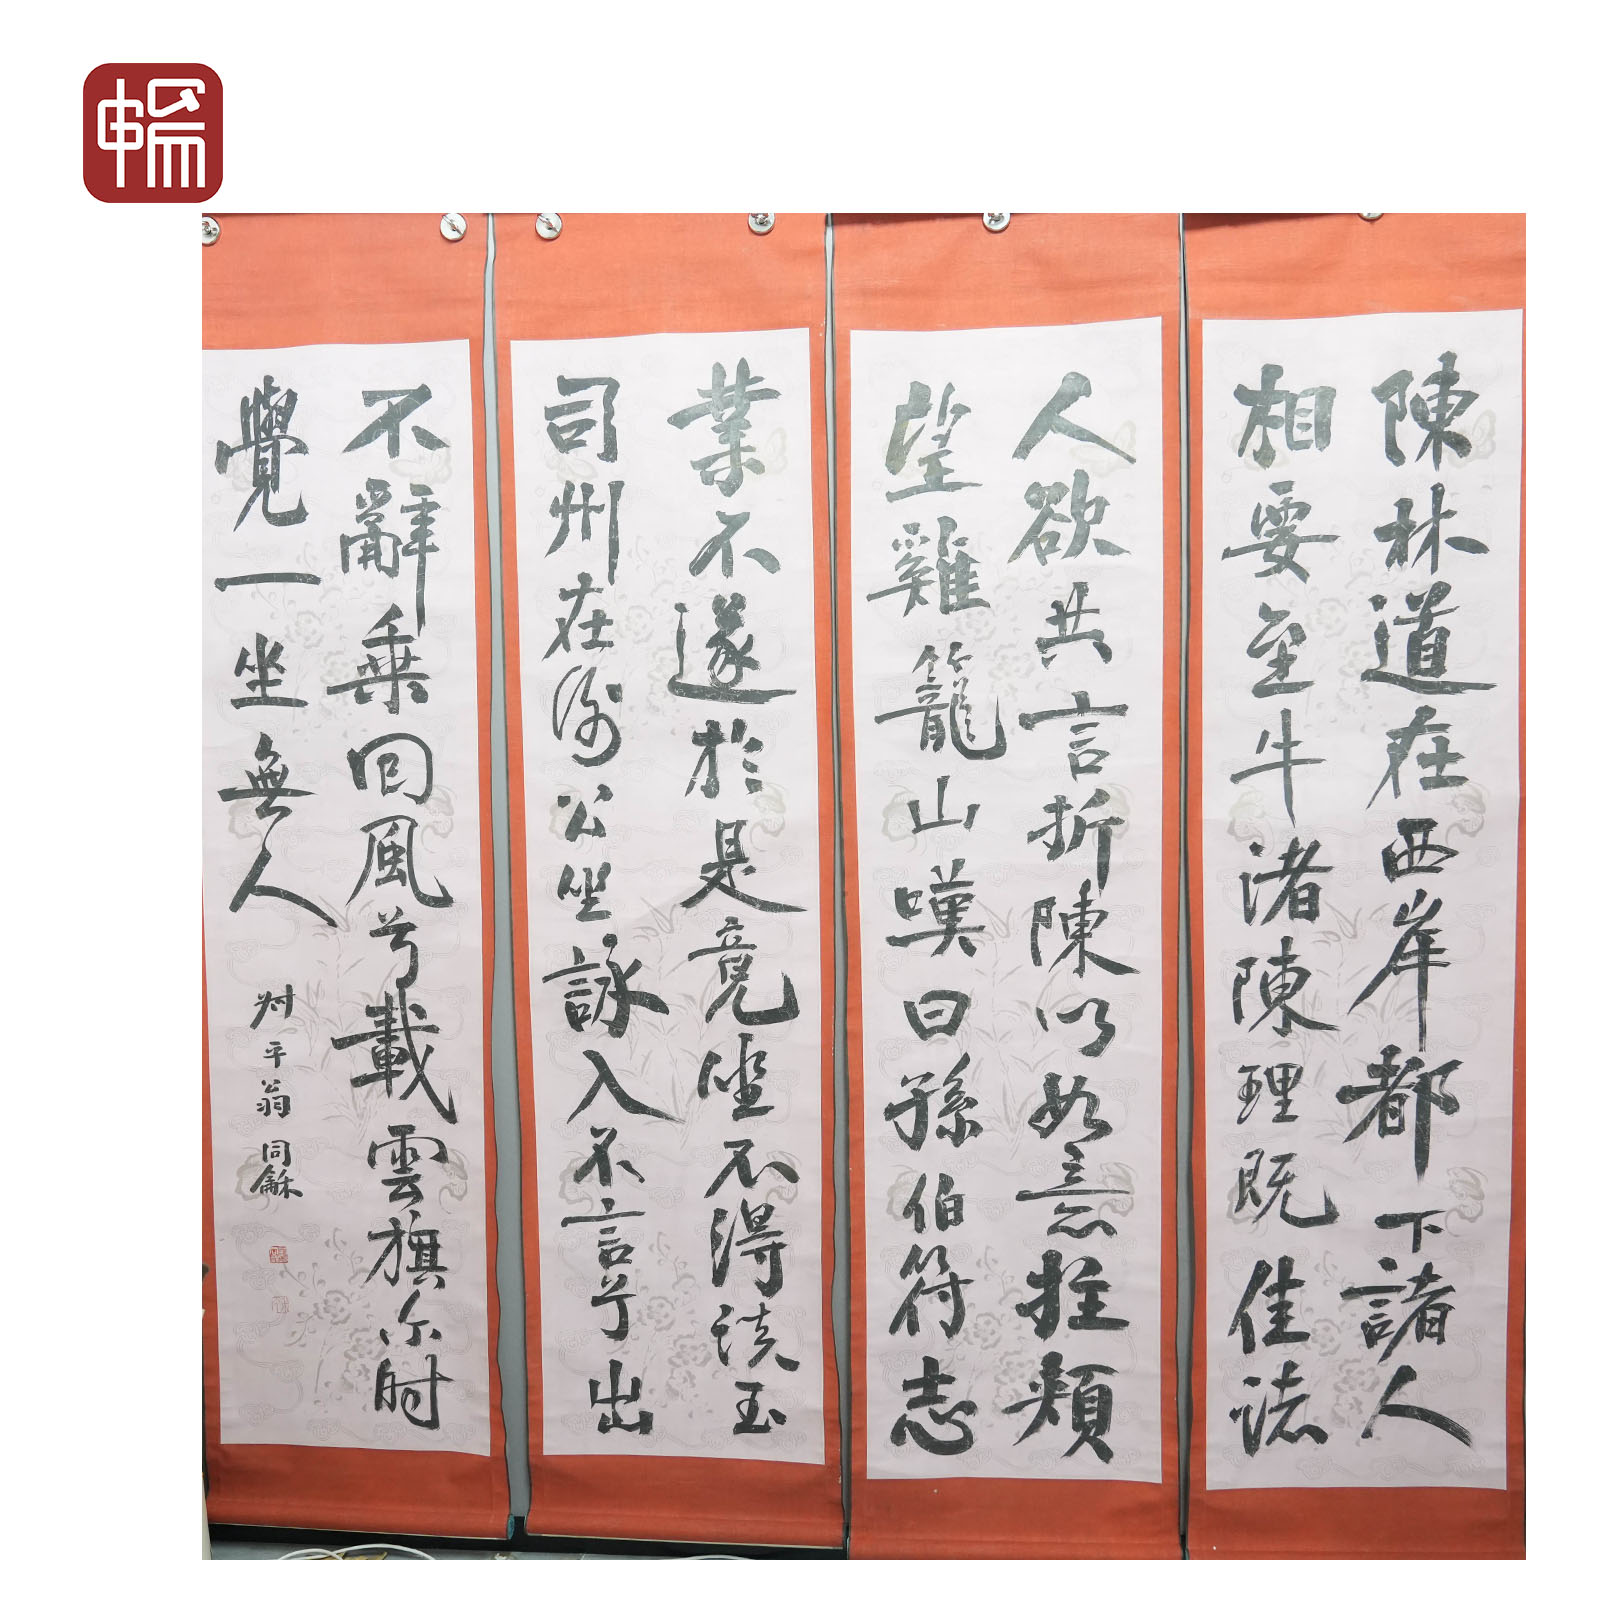 陳林道在西岸都下諸人
相要至牛渚陳理既佳
人欲共言折陳以如意拄頰
望雞籠山嘆曰孫伯符志
業不遂於是竟坐不得談王
司州在謝公坐詠入不言兮出
不辭乘回風兮載雲旗尔時
覺一坐無人
叔平翁同龢